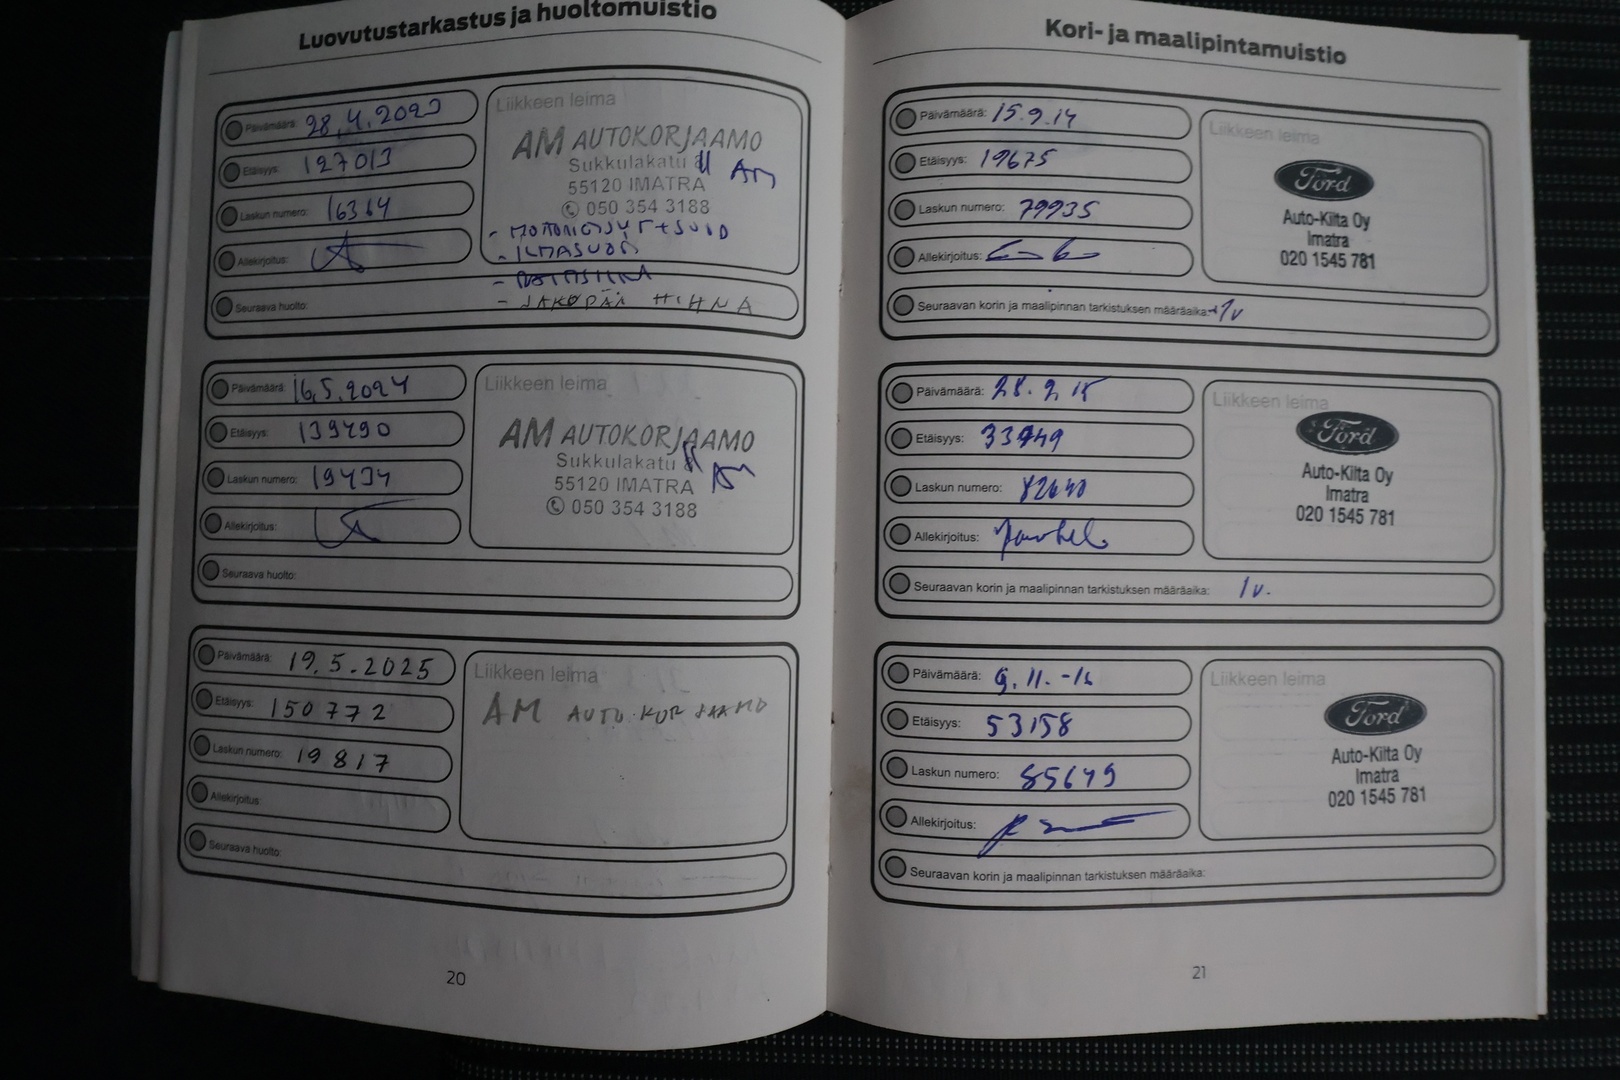 Luovutustarkastus ja huoltomuistio
Päivämäärä: 28.4.2023
Etäisyys: 127013
Laskun numero: 16364
Allekirjoitus:
Seuraava huolto:
Liikkeen leima
AM AUTOKORJAAMO
Sukkulakatu 11 AM
55120 IMATRA
050 354 3188
- MOOTTORIÖLJYT + SUOD
- ILMASUOD
- RAITISILMA
- JAKOPÄÄ HIHNA
Päivämäärä: 16.5.2024
Etäisyys: 139490
Laskun numero: 19434
Allekirjoitus:
Seuraava huolto:
Liikkeen leima
AM AUTOKORJAAMO
Sukkulakatu 11 AM
55120 IMATRA
050 354 3188
Päivämäärä: 19.5.2025
Etäisyys: 150772
Laskun numero: 19817
Allekirjoitus:
Seuraava huolto:
Liikkeen leima
AM AUTO KORJAAMO
20
Kori- ja maalipintamuistio
Päivämäärä: 15.9.14
Etäisyys: 19675
Laskun numero: 79935
Allekirjoitus:
Seuraavan korin ja maalipinnan tarkistuksen määräaika: +1v
Liikkeen leima
Ford
Auto-Kilta Oy
Imatra
020 1545 781
Päivämäärä: 28.9.15
Etäisyys: 33949
Laskun numero: 82640
Allekirjoitus:
Seuraavan korin ja maalipinnan tarkistuksen määräaika: 1v.
Liikkeen leima
Ford
Auto-Kilta Oy
Imatra
020 1545 781
Päivämäärä: 9.11.-16
Etäisyys: 53158
Laskun numero: 85679
Allekirjoitus:
Seuraavan korin ja maalipinnan tarkistuksen määräaika:
Liikkeen leima
Ford
Auto-Kilta Oy
Imatra
020 1545 781
21